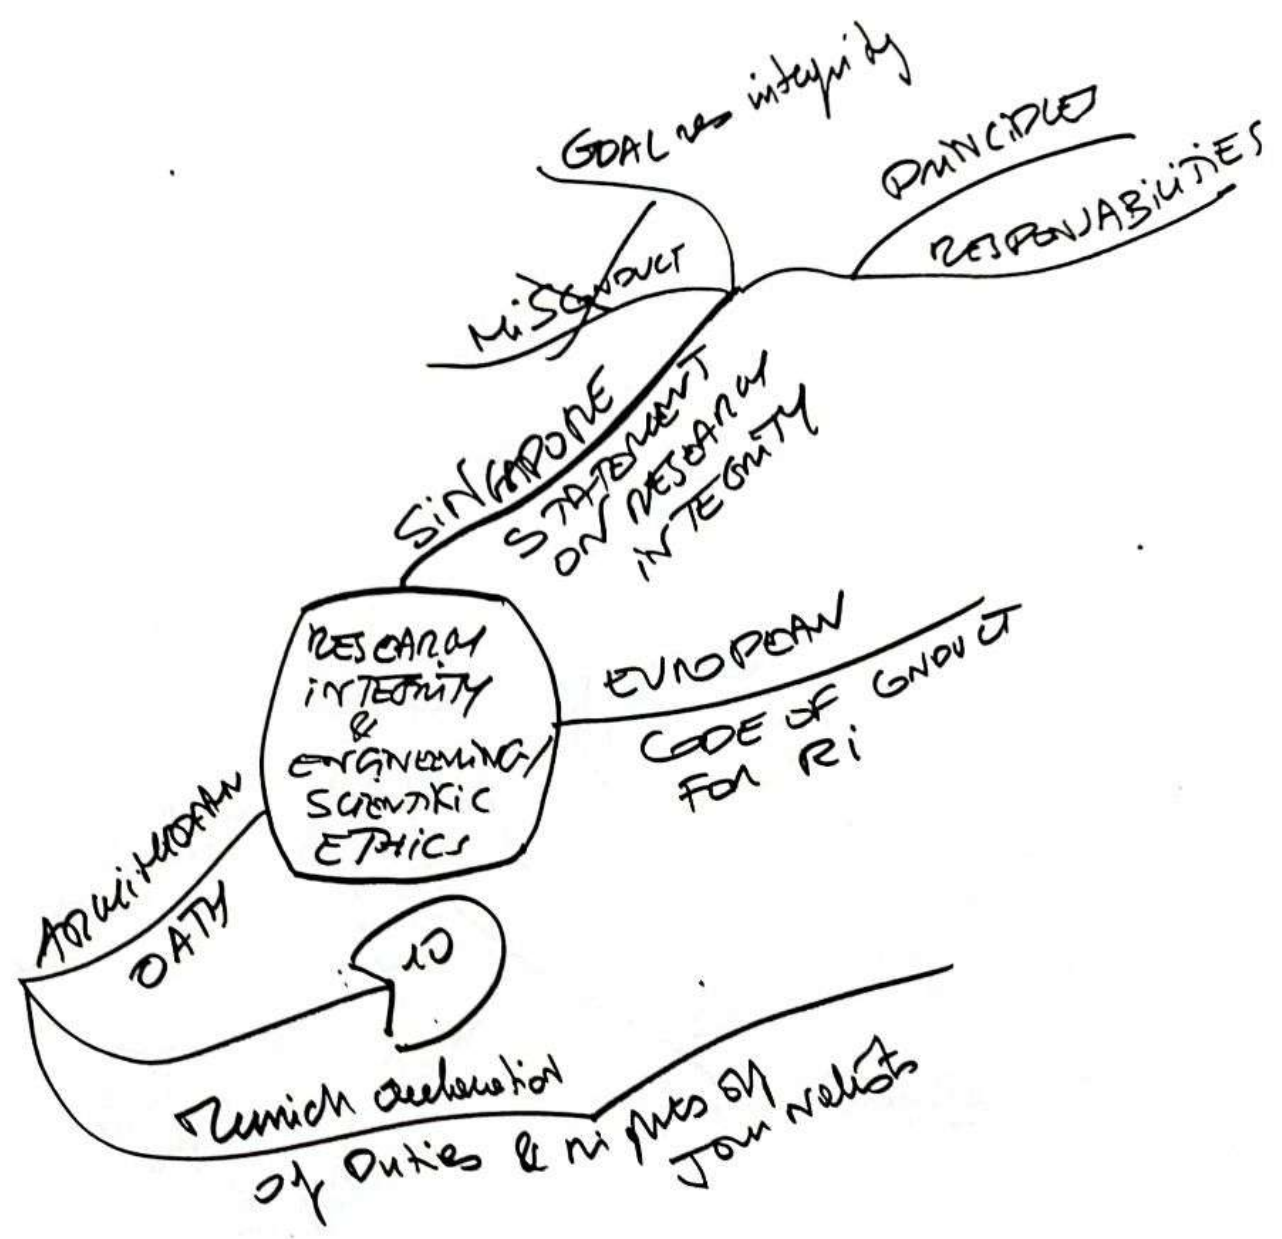 GOAL res integrity
PRINCIPLES
RESPONSABILITIES
MISCONDUCT
SINGAPORE
STATEMENT
ON RESEARCH
INTEGRITY
RESEARCH
INTEGRITY
&
ENGINEERING/
SCIENTIFIC
ETHICS
EUROPEAN
CODE OF CONDUCT
FOR RI
ARCHIMEDEAN
OATH
10
Munich declaration
of Duties & rights of
Journalists